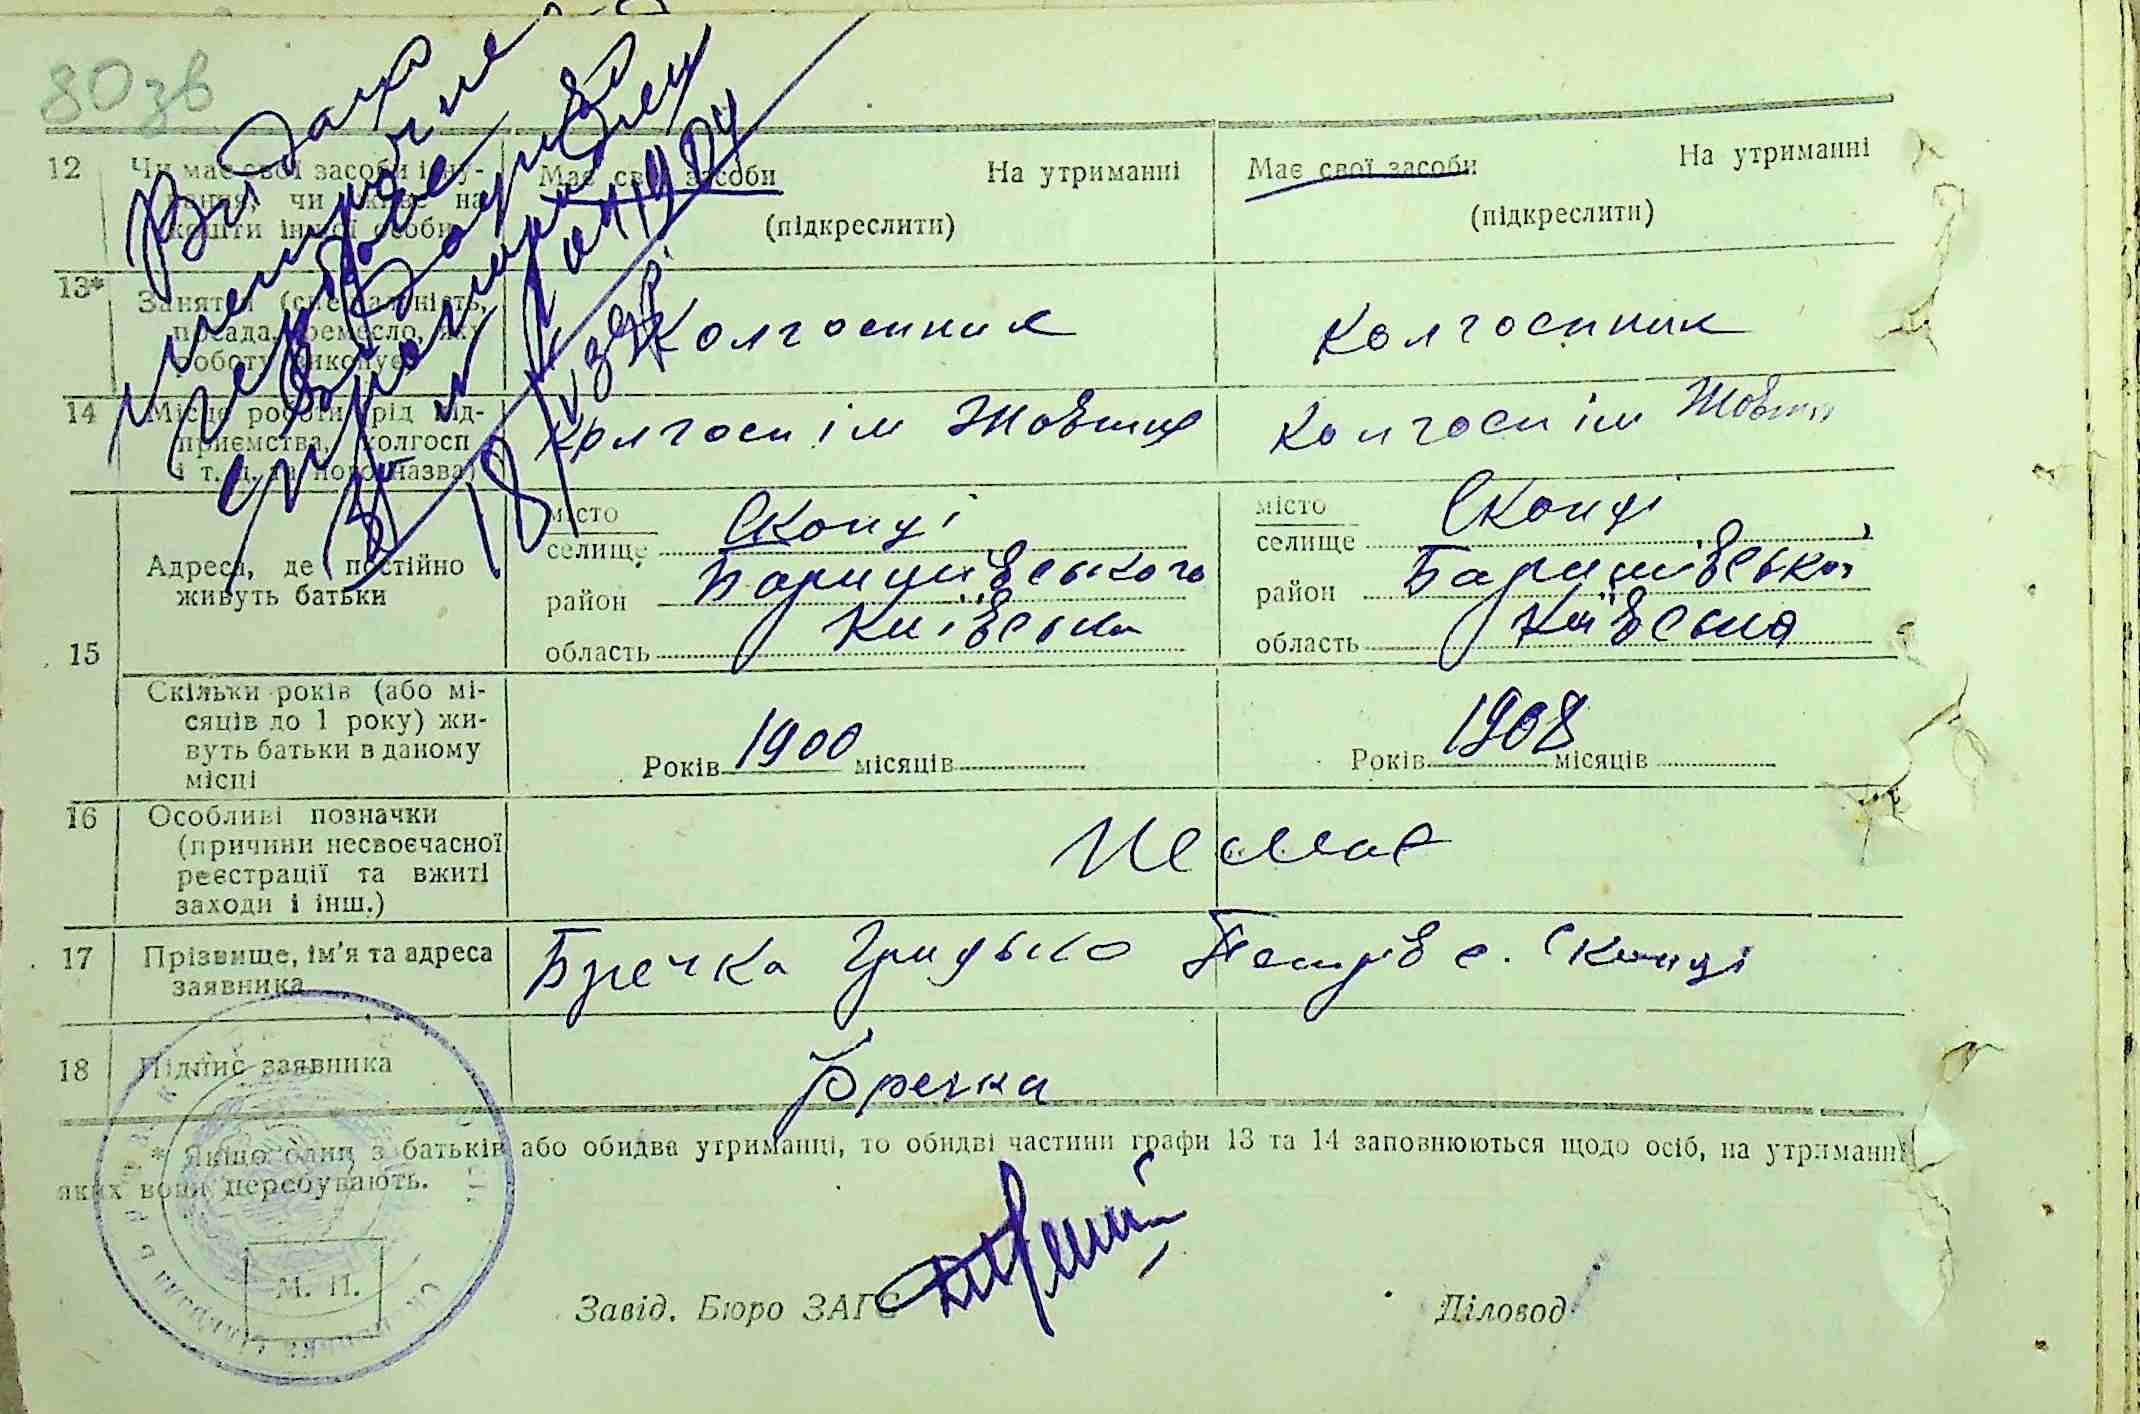 80 зв
12 Чи має свої засоби існу-
вання, чи живе на
кошти іншої особи
Має свої засоби На утриманні
(підкреслити)
Має свої засоби На утриманні
(підкреслити)
13* Заняття (спеціальність,
посада, ремесло, яку
роботу виконує)
Колгоспник
Колгоспник
14 Місце роботи (рід під-
приємства, колгосп
і т. д. та його назва)
Колгосп ім Жовтня
Колгосп ім Жовтн
15 Адреса, де постійно
живуть батьки
місто
селище Скопці
район Баришівського
область Київська
місто
селище Скопці
район Баришівсько
область Київсько
Скільки років (або мі-
сяців до 1 року) жи-
вуть батьки в даному
місці
Років 1900 місяців
Років 1908 місяців
16 Особливі позначки
(причини несвоєчасної
реєстрації та вжиті
заходи і інш.)
Немає
17 Прізвище, ім'я та адреса
заявника
Бречка Грицько Петров с. Скопці
18 Підпис заявника
Бречка
* Якщо один з батьків або обидва утриманці, то обидві частини графи 13 та 14 заповнюються щодо осіб, на утриманні
яких вони перебувають.
М. П.
Завід. Бюро ЗАГС
Діловод